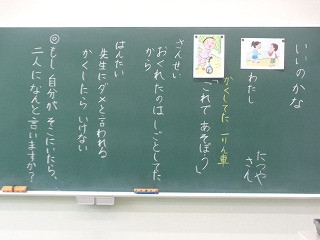 いいのかな
わたし
たつやさん
かくしてた一りん車
「これであそぼう」
さんせい
おくれたのはしごとしてた
から
はんたい
先生にダメと言われる
かくしたらいけない
◎もし自分がそこにいたら、
二人になんと言いますか？